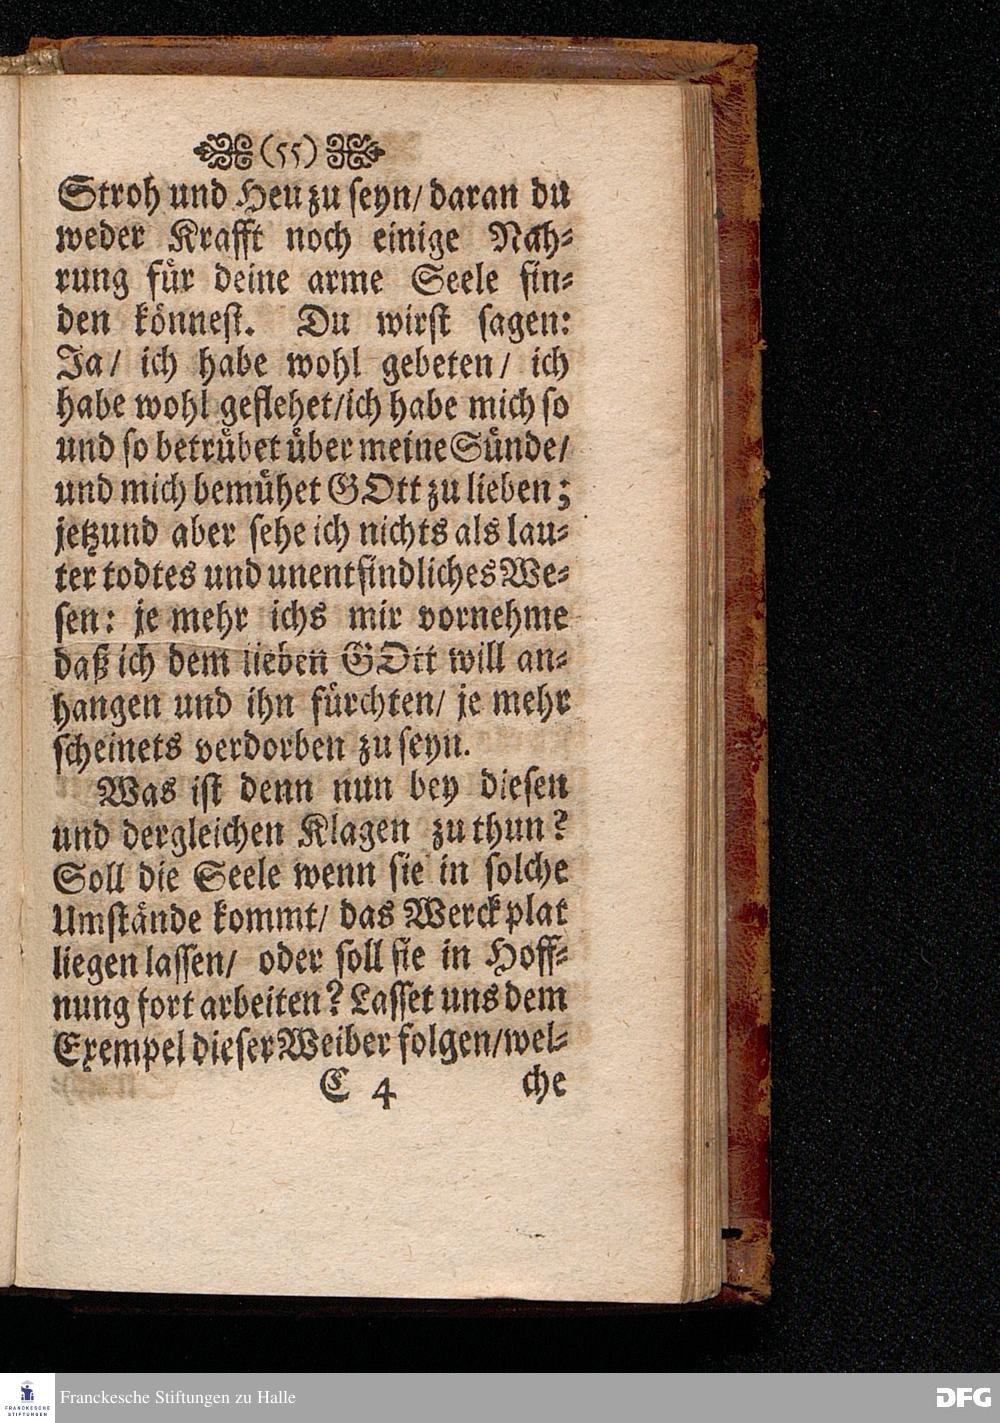 (55)
Stroh und Heu zu seyn/ daran du
weder Krafft noch einige Nah-
rung für deine arme Seele fin-
den könnest. Du wirst sagen:
Ja/ ich habe wohl gebeten/ ich
habe wohl geflehet/ich habe mich so
und so betrübet über meine Sünde/
und mich bemühet GOtt zu lieben;
jetzund aber sehe ich nichts als lau-
ter todtes und unentfindliches We-
sen: je mehr ichs mir vornehme
daß ich dem lieben GOtt will an-
hangen und ihn fürchten/ je mehr
scheinets verdorben zu seyn.
Was ist denn nun bey diesen
und dergleichen Klagen zu thun?
Soll die Seele wenn sie in solche
Umstände kommt/ das Werck plat
liegen lassen/ oder soll sie in Hoff-
nung fort arbeiten? Lasset uns dem
Exempel dieser Weiber folgen/wel-
C 4 che
FRANCKESCHE STIFTUNGEN
Franckesche Stiftungen zu Halle
DFG